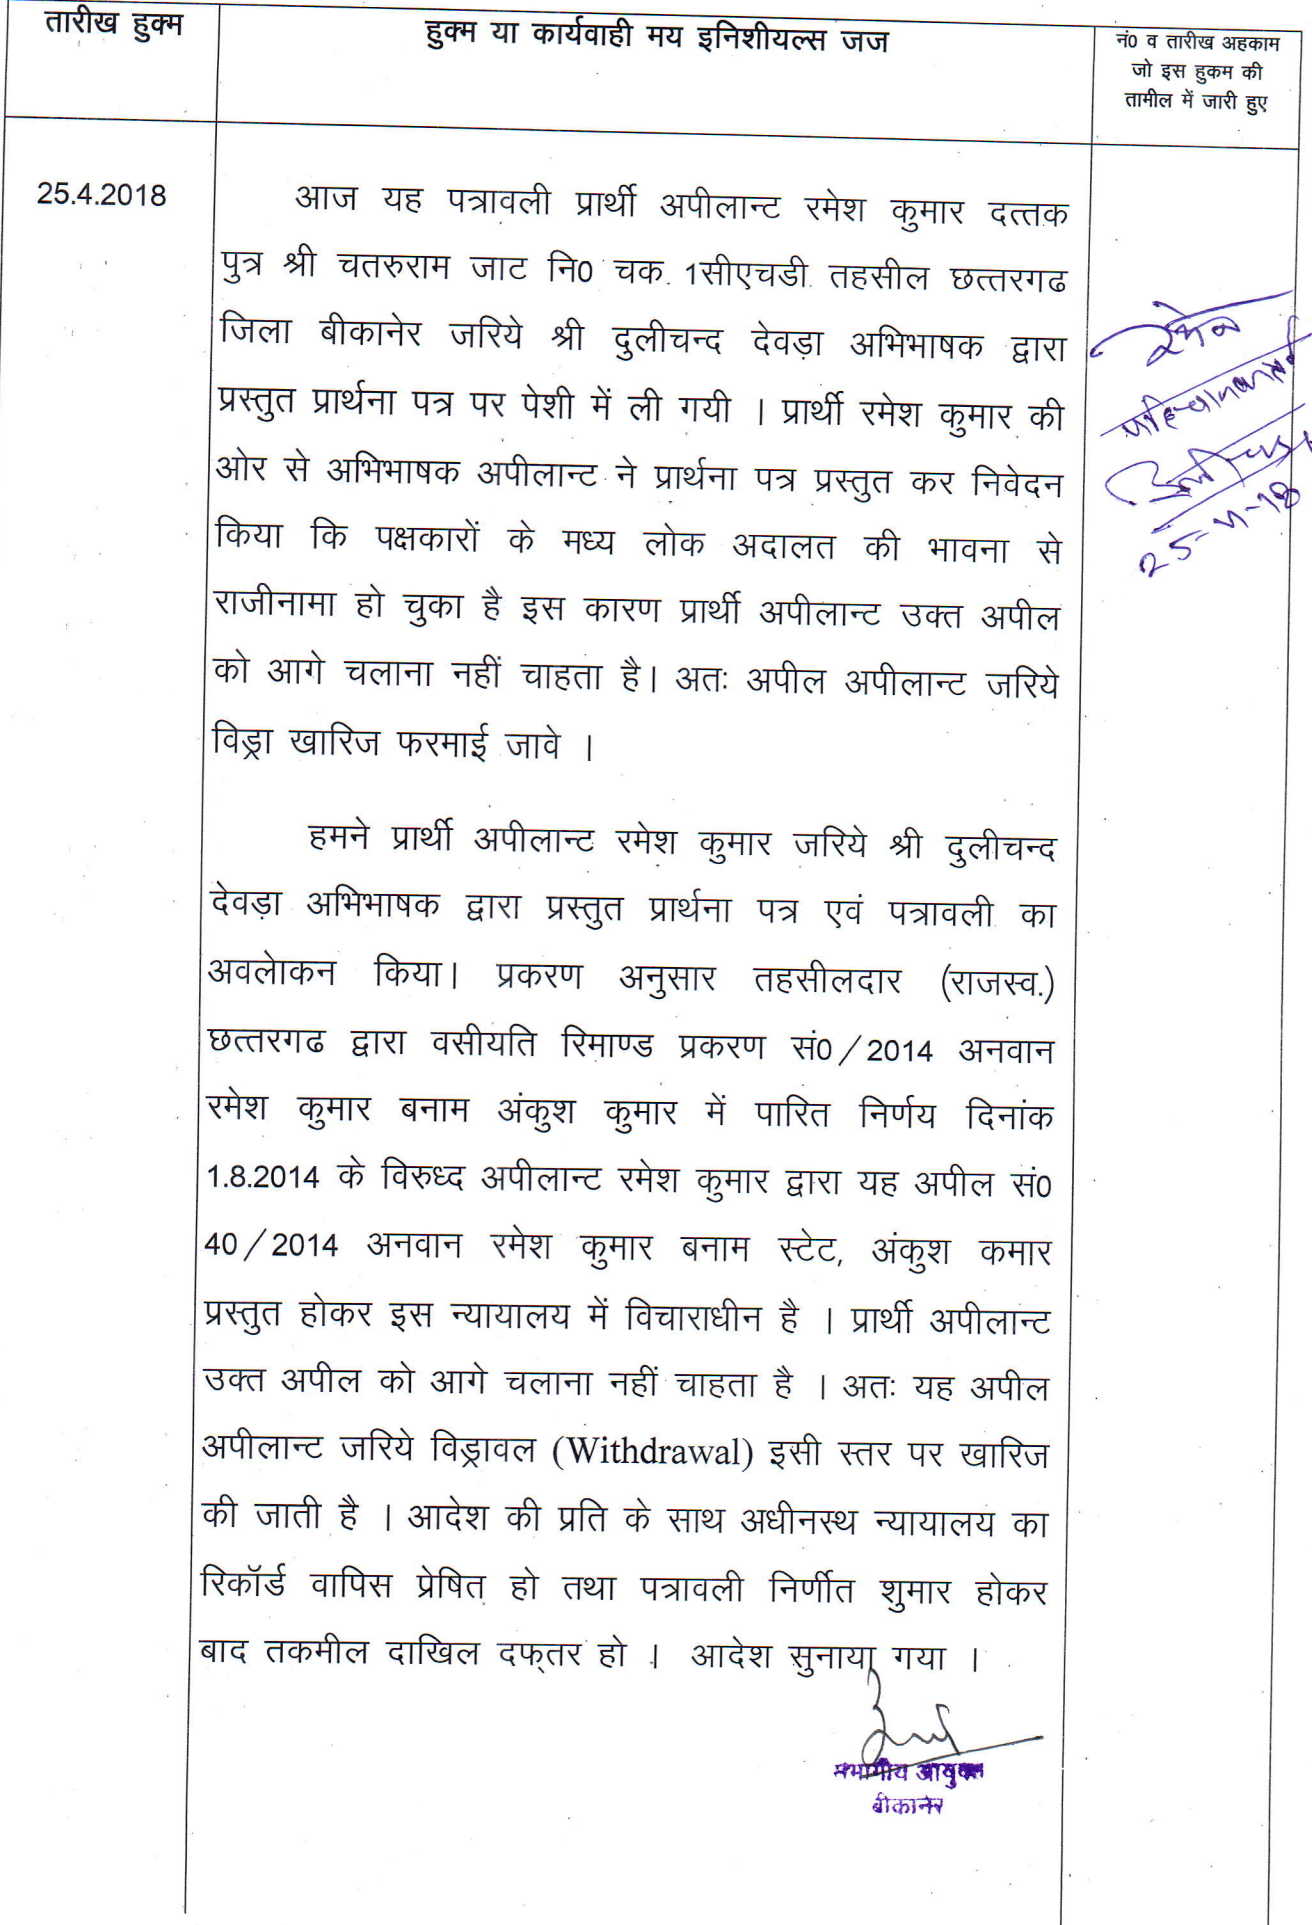 तारीख हुक्म
हुक्म या कार्यवाही मय इनिशीयल्स जज
नं0 व तारीख अहकाम
जो इस हुकम की
तामील में जारी हुए
25.4.2018
आज यह पत्रावली प्रार्थी अपीलान्ट रमेश कुमार दत्तक
पुत्र श्री चतरुराम जाट नि0 चक. 1सीएचडी. तहसील छत्तरगढ
जिला बीकानेर जरिये श्री दुलीचन्द देवड़ा अभिभाषक द्वारा
प्रस्तुत प्रार्थना पत्र पर पेशी में ली गयी । प्रार्थी रमेश कुमार की
ओर से अभिभाषक अपीलान्ट ने प्रार्थना पत्र प्रस्तुत कर निवेदन
किया कि पक्षकारों के मध्य लोक अदालत की भावना से
राजीनामा हो चुका है इस कारण प्रार्थी अपीलान्ट उक्त अपील
को आगे चलाना नहीं चाहता है। अतः अपील अपीलान्ट जरिये
विड्रा खारिज फरमाई जावे ।
हमने प्रार्थी अपीलान्ट रमेश कुमार जरिये श्री दुलीचन्द
देवड़ा अभिभाषक द्वारा प्रस्तुत प्रार्थना पत्र एवं पत्रावली का
अवलेाकन किया। प्रकरण अनुसार तहसीलदार (राजस्व.)
छत्तरगढ द्वारा वसीयति रिमाण्ड प्रकरण सं0/2014 अनवान
रमेश कुमार बनाम अंकुश कुमार में पारित निर्णय दिनांक
1.8.2014 के विरुध्द अपीलान्ट रमेश कुमार द्वारा यह अपील सं0
40/2014 अनवान रमेश कुमार बनाम स्टेट, अंकुश कमार
प्रस्तुत होकर इस न्यायालय में विचाराधीन है । प्रार्थी अपीलान्ट
उक्त अपील को आगे चलाना नहीं चाहता है । अतः यह अपील
अपीलान्ट जरिये विड्रावल (Withdrawal) इसी स्तर पर खारिज
की जाती है । आदेश की प्रति के साथ अधीनस्थ न्यायालय का
रिकॉर्ड वापिस प्रेषित हो तथा पत्रावली निर्णीत शुमार होकर
बाद तकमील दाखिल दफ्तर हो । आदेश सुनाया गया ।
आयुक्त
बीकानेर
25-4-18